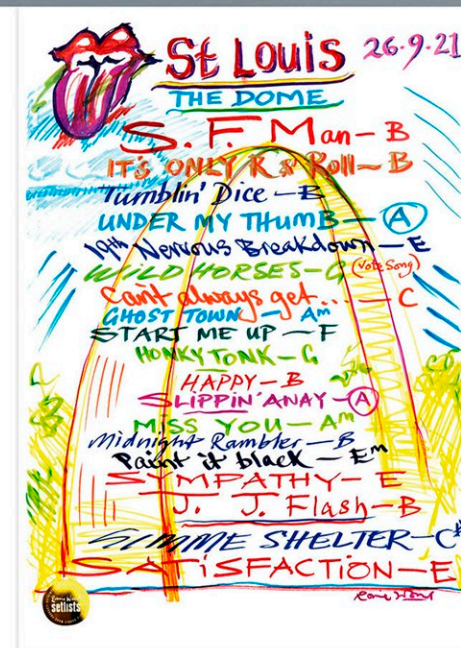 St Louis 26.9.21
THE DOME
S.F. Man - B
IT'S ONLY R & Roll - B
Tumblin' Dice - B
UNDER MY THUMB - A
19th Nervous Breakdown - E
WILD HORSES - G (Vote Song)
Can't always get... - C
GHOST TOWN - Am
START ME UP - F
HONKY TONK - G
HAPPY - B
SLIPPIN' AWAY - A
MISS YOU - Am
Midnight Rambler - B
Paint it black - Em
SYMPATHY - E
J. J. Flash - B
GIMME SHELTER - C#
SATiSFACTION - E
setlists